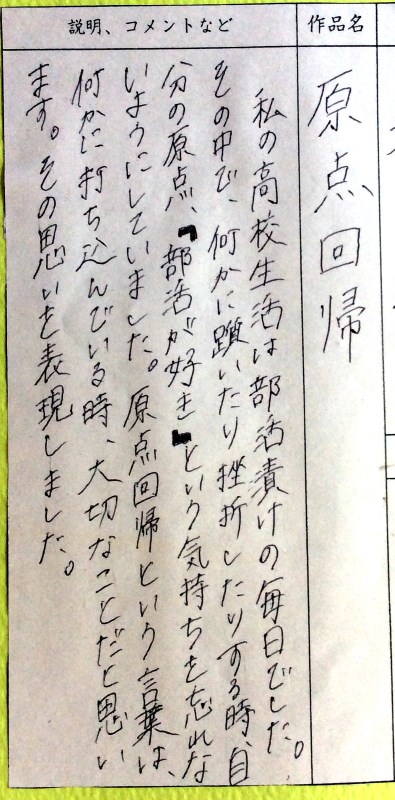 作品名
原点回帰
説明、コメントなど
私の高校生活は部活漬けの毎日でした。
その中で、何かに躓いたり挫折したりする時、自
分の原点、「部活が好き」という気持ちを忘れな
いようにしていました。原点回帰という言葉は、
何かに打ち込んでいる時、大切なことだと思い
ます。その思いを表現しました。